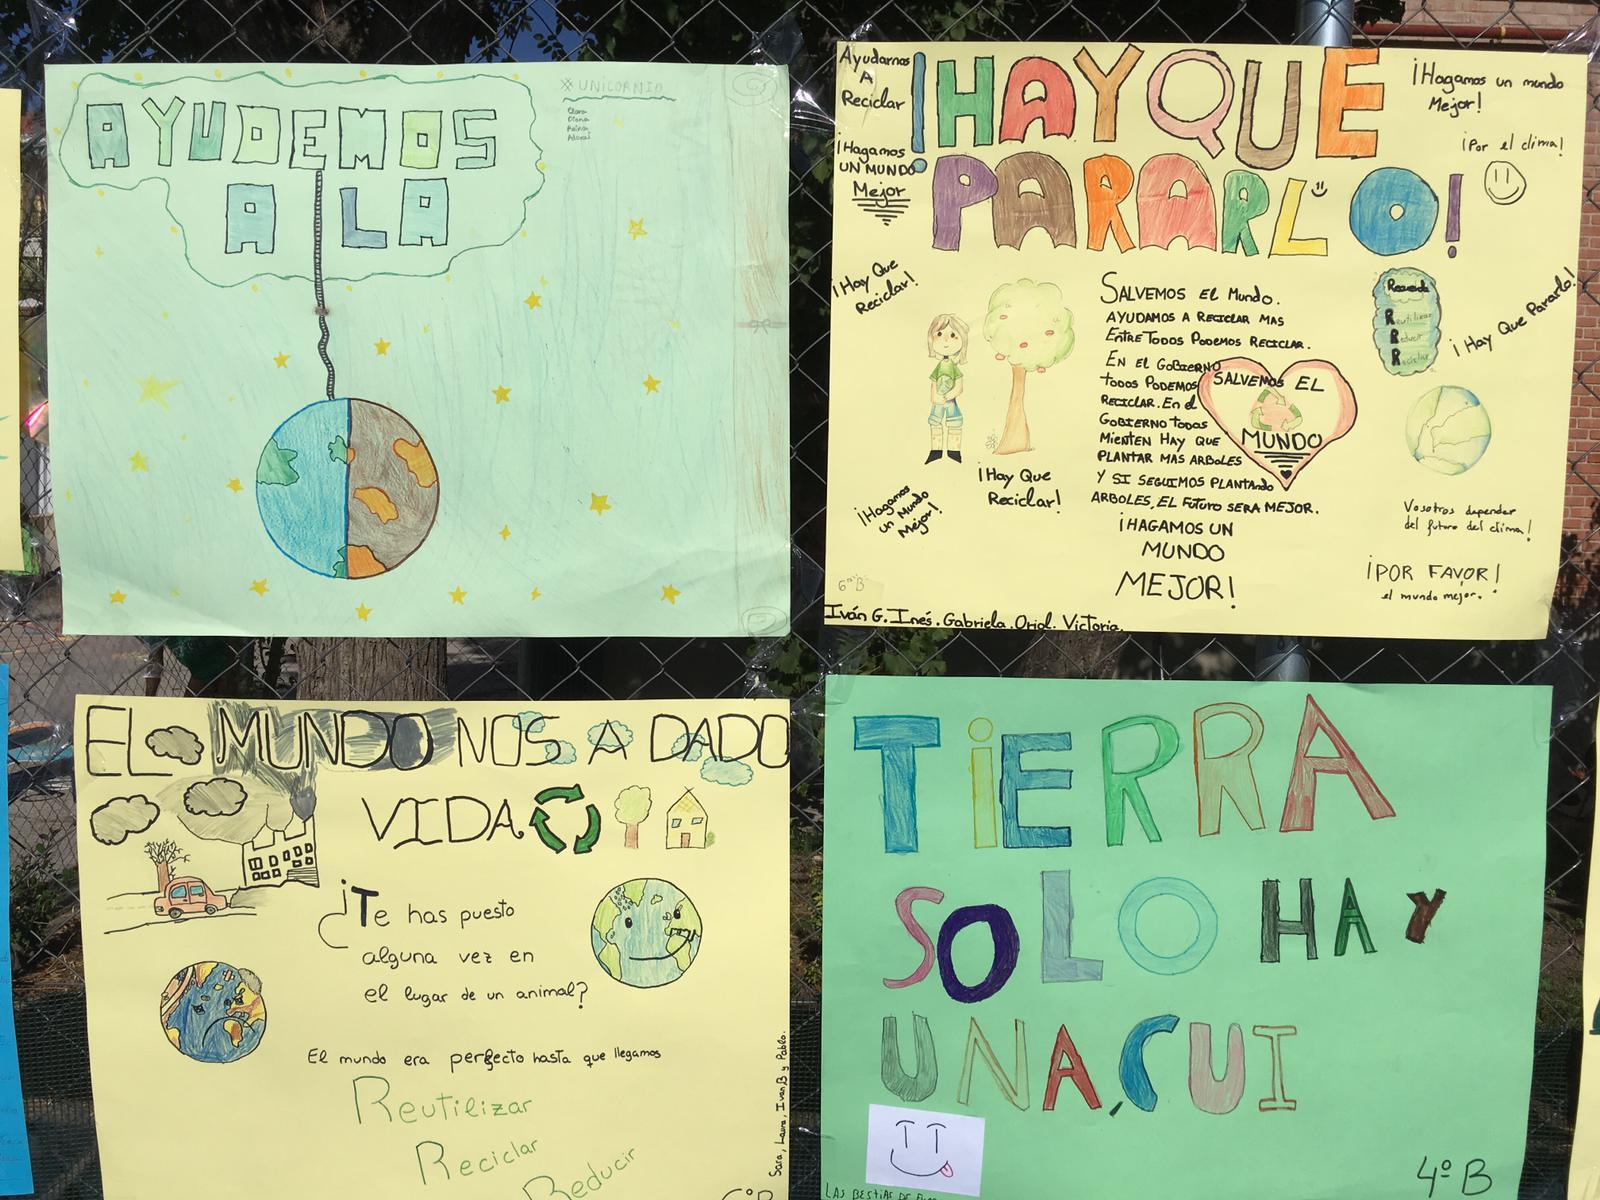 AYUDEMOS
A LA
UNICORNIO
Clara
Diana
Ayudarnos
A
Reciclar
¡HAY QUE
PARARLO!
¡Hagamos un mundo
Mejor!
¡Por el clima!
¡Hagamos
UN MUNDO
Mejor
¡Hay Que
Reciclar!
SALVEMOS El Mundo.
AYUDAMOS A RECICLAR MAS
ENTRE TODOS PODEMOS RECICLAR.
EN EL GOBIERNO
todos PODEMOS
RECICLAR. En el
GOBIERNO todos
MIENTEN HAY QUE
PLANTAR MAS ARBOLES
Y SI SEGUIMOS PLANTANdo
ARBOLES, EL FUTURO SERA MEJOR.
¡HAGAMOS UN
MUNDO
MEJOR!
SALVEMOS EL
MUNDO
Recuerda
Reutilizar
Reducir
Reciclar
¡Hay Que Pararlo!
¡Hay Que
Reciclar!
¡Hagamos
un Mundo
Mejor!
Vosotros depender
del futuro del clima!
¡POR FAVOR!
el mundo mejor.
6º B
Iván G. Inés. Gabriela. Oriol. Victoria.
EL MUNDO NOS A DADO
VIDA
¿Te has puesto
alguna vez en
el lugar de un animal?
El mundo era perfecto hasta que llegamos
Reutilizar
Reciclar
Reducir
Sara, Laura, Ivan B y Pablo.
6º B
TiERRA
SOLO HAY
UNA, CUI
4º B
LAS BESTIAS DE